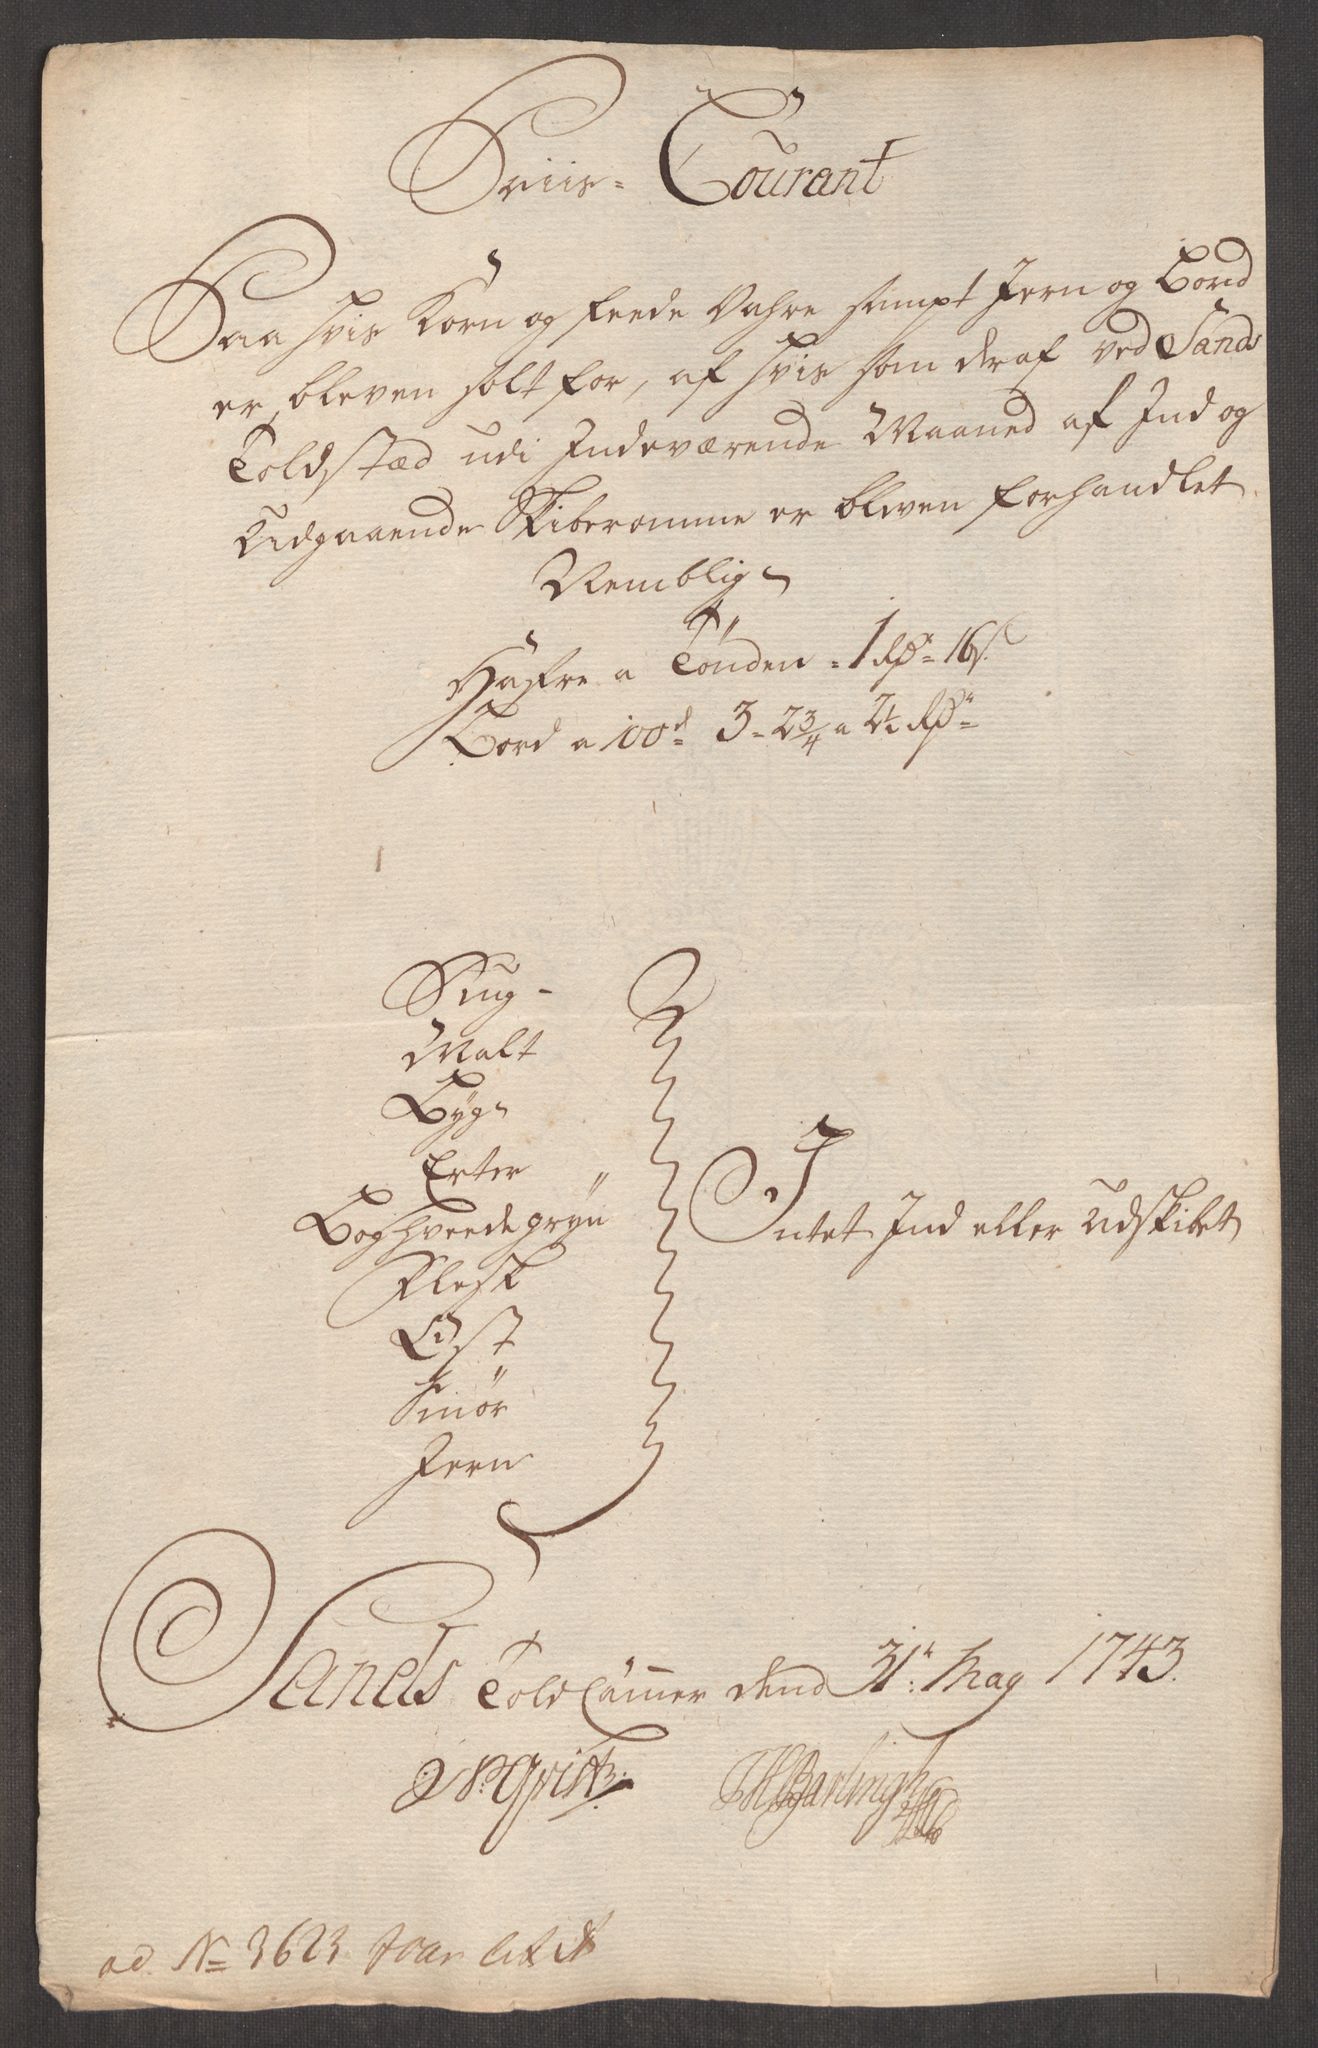 Priis- Courant
Saa hvis Korn og feede Vahre sampt Jern og Bord
er bleven solt for, af hvis som deraf ved Sands
Toldstæd udi Indeværende Maaned af Ind og
Udgaaende Skiberomme er bleven forhandlet
Nemblig
Hafre a Tønden - 1 Rdr 16 s.
Bord a 100d 3 - 2 3/4 a 2 1/2 Rdr
Rug -
Malt
Byg
Erter
Boghveede gryn
Flesk
Ost
Smør
Jern
Intet Ind eller Udskibet
Sands Told Cammer dend 31te May 1743.
ad No 3623